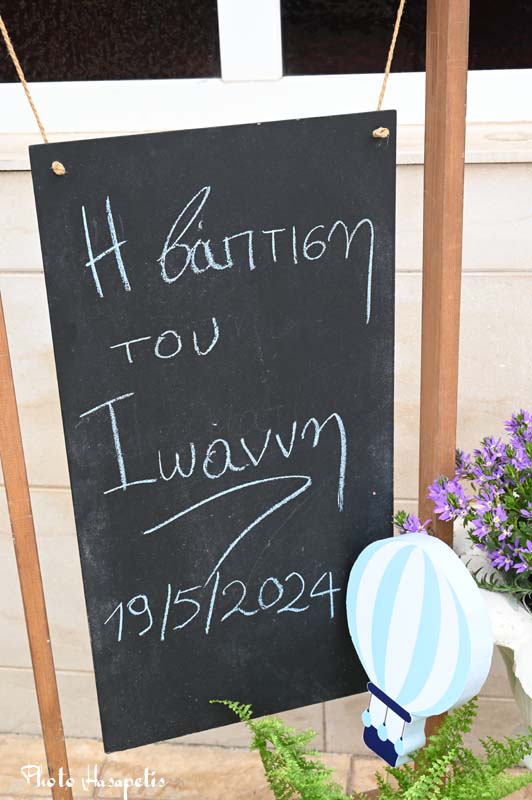 Η βάπτιση
του
Ιωάννη
19/5/2024
Photo Hasapetis